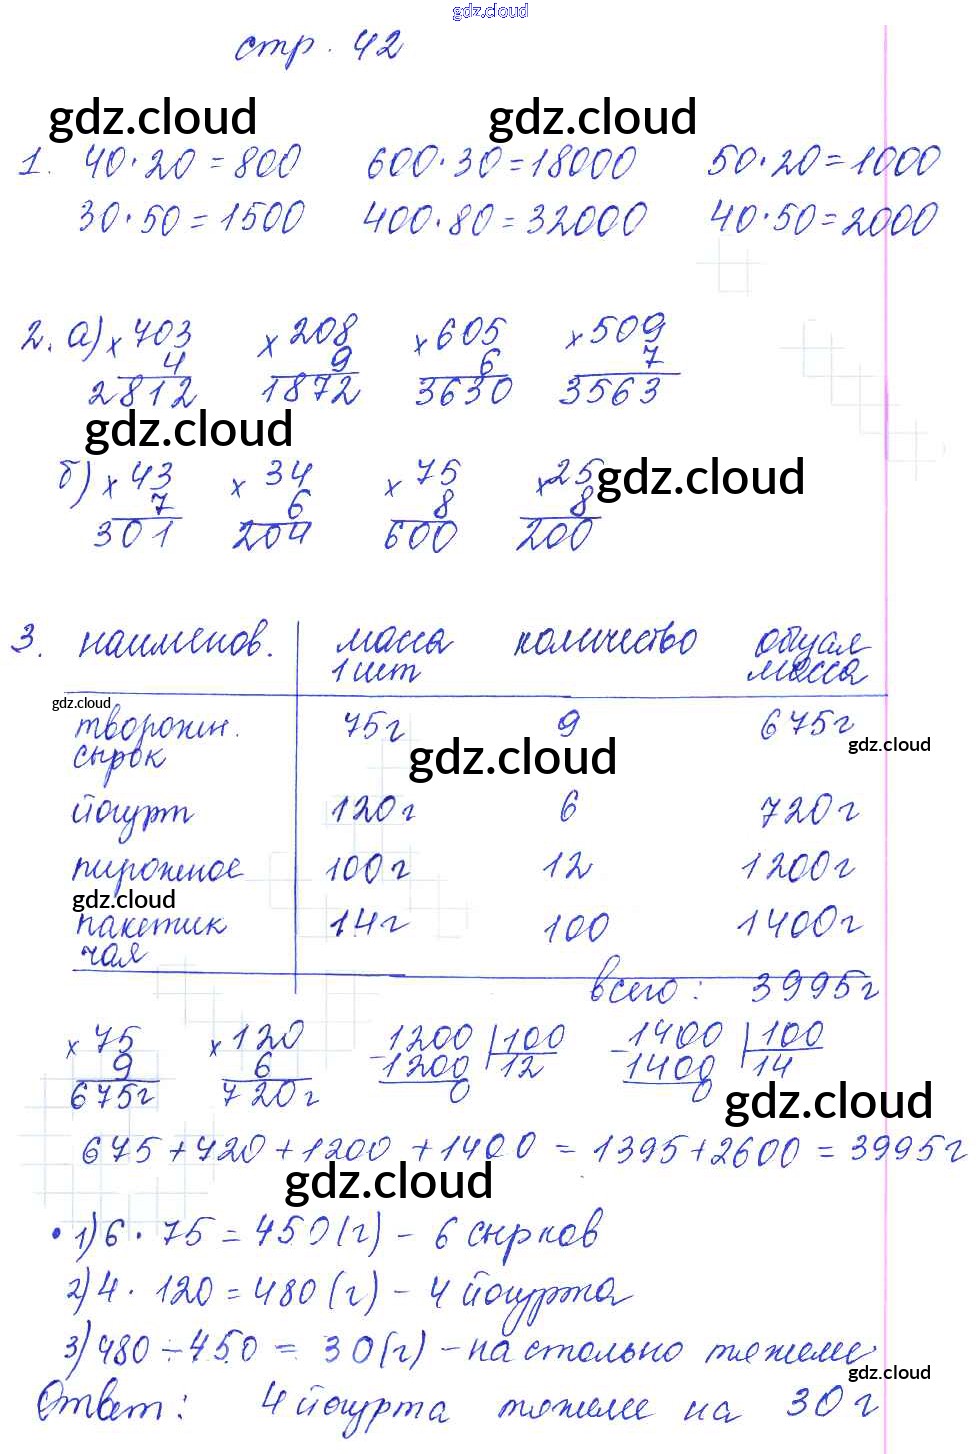 gdz.cloud
стр. 42
gdz.cloud gdz.cloud
1. 40·20=800 600·30=18000 50·20=1000
30·50=1500 400·80=32000 40·50=2000
2. а) × 703 × 208 × 605 × 509
4 9 6 7
2812 1872 3630 3563
gdz.cloud
б) × 43 × 34 × 75 × 25 gdz.cloud
7 6 8 8
301 204 600 200
3. наименов. масса количество общая
1 шт масса
gdz.cloud
творожн. 75г 9 675г
сырок gdz.cloud gdz.cloud
йогурт 120г 6 720г
пирожное 100г 12 1200г
gdz.cloud
пакетик 14г 100 1400г
чая
всего: 3995г
× 75 × 120 - 1200 100 - 1400 100
9 6 1200 12 1400 14
675г 720г 0 0
gdz.cloud
675+720+1200+1400=1395+2600=3995г
gdz.cloud
• 1) 6·75=450(г) – 6 сырков
2) 4·120=480(г) – 4 йогурта
3) 480-450=30(г) – на столько тяжеле
gdz.cloud
Ответ: 4 йогурта тяжеле на 30 г